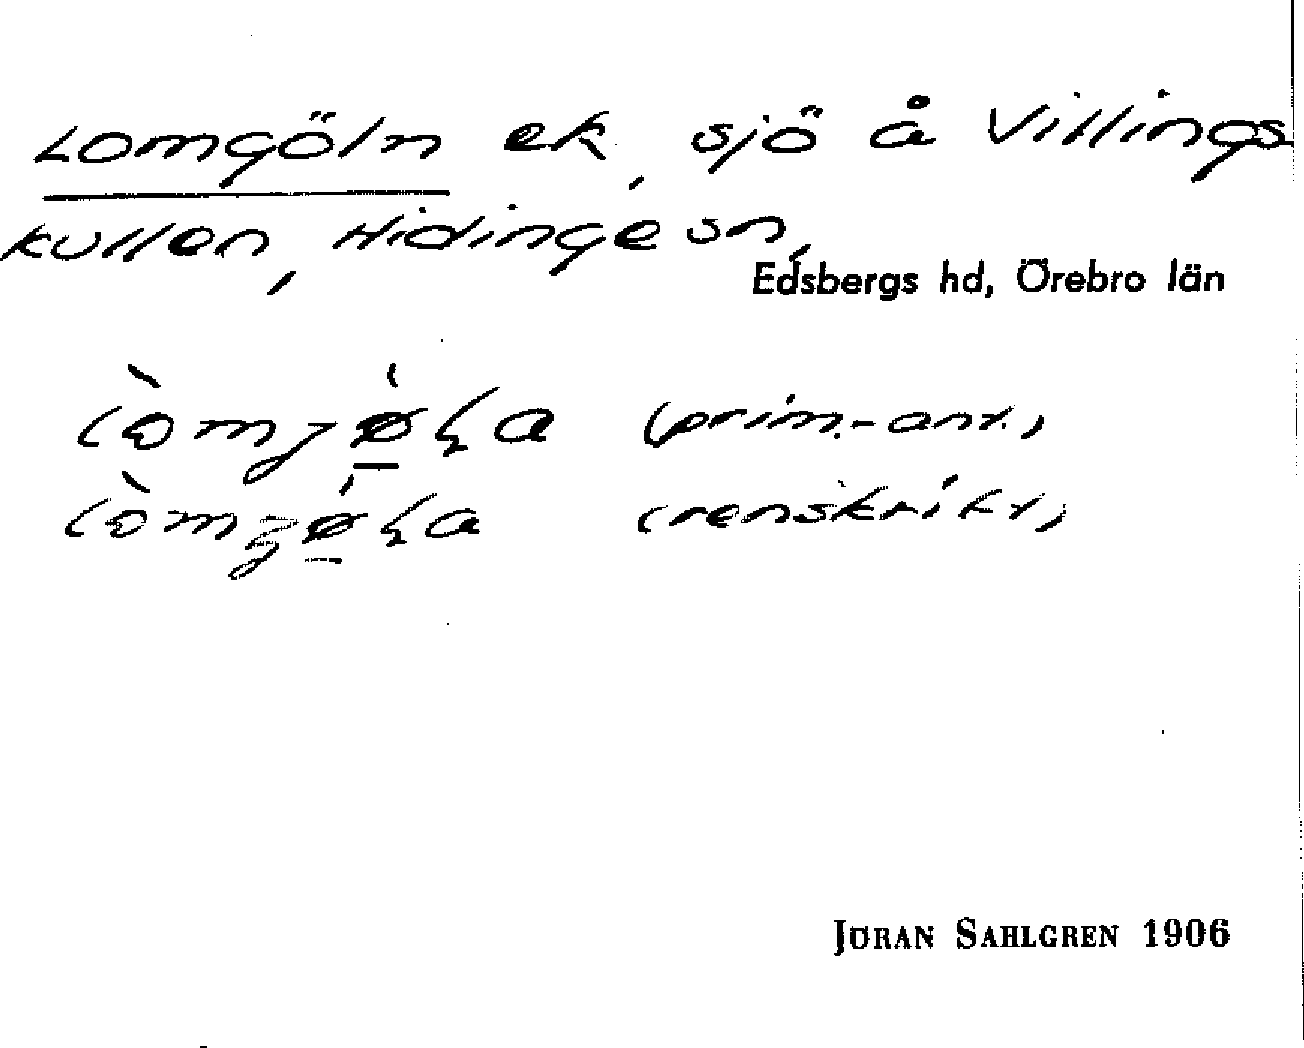 Lomgöln ek, sjö å Villings
kullen, Hidinge sn,
Edsbergs hd, Örebro län
(prim.-ant.)
(renskrikt)
JÖRAN SAHLGREN 1906